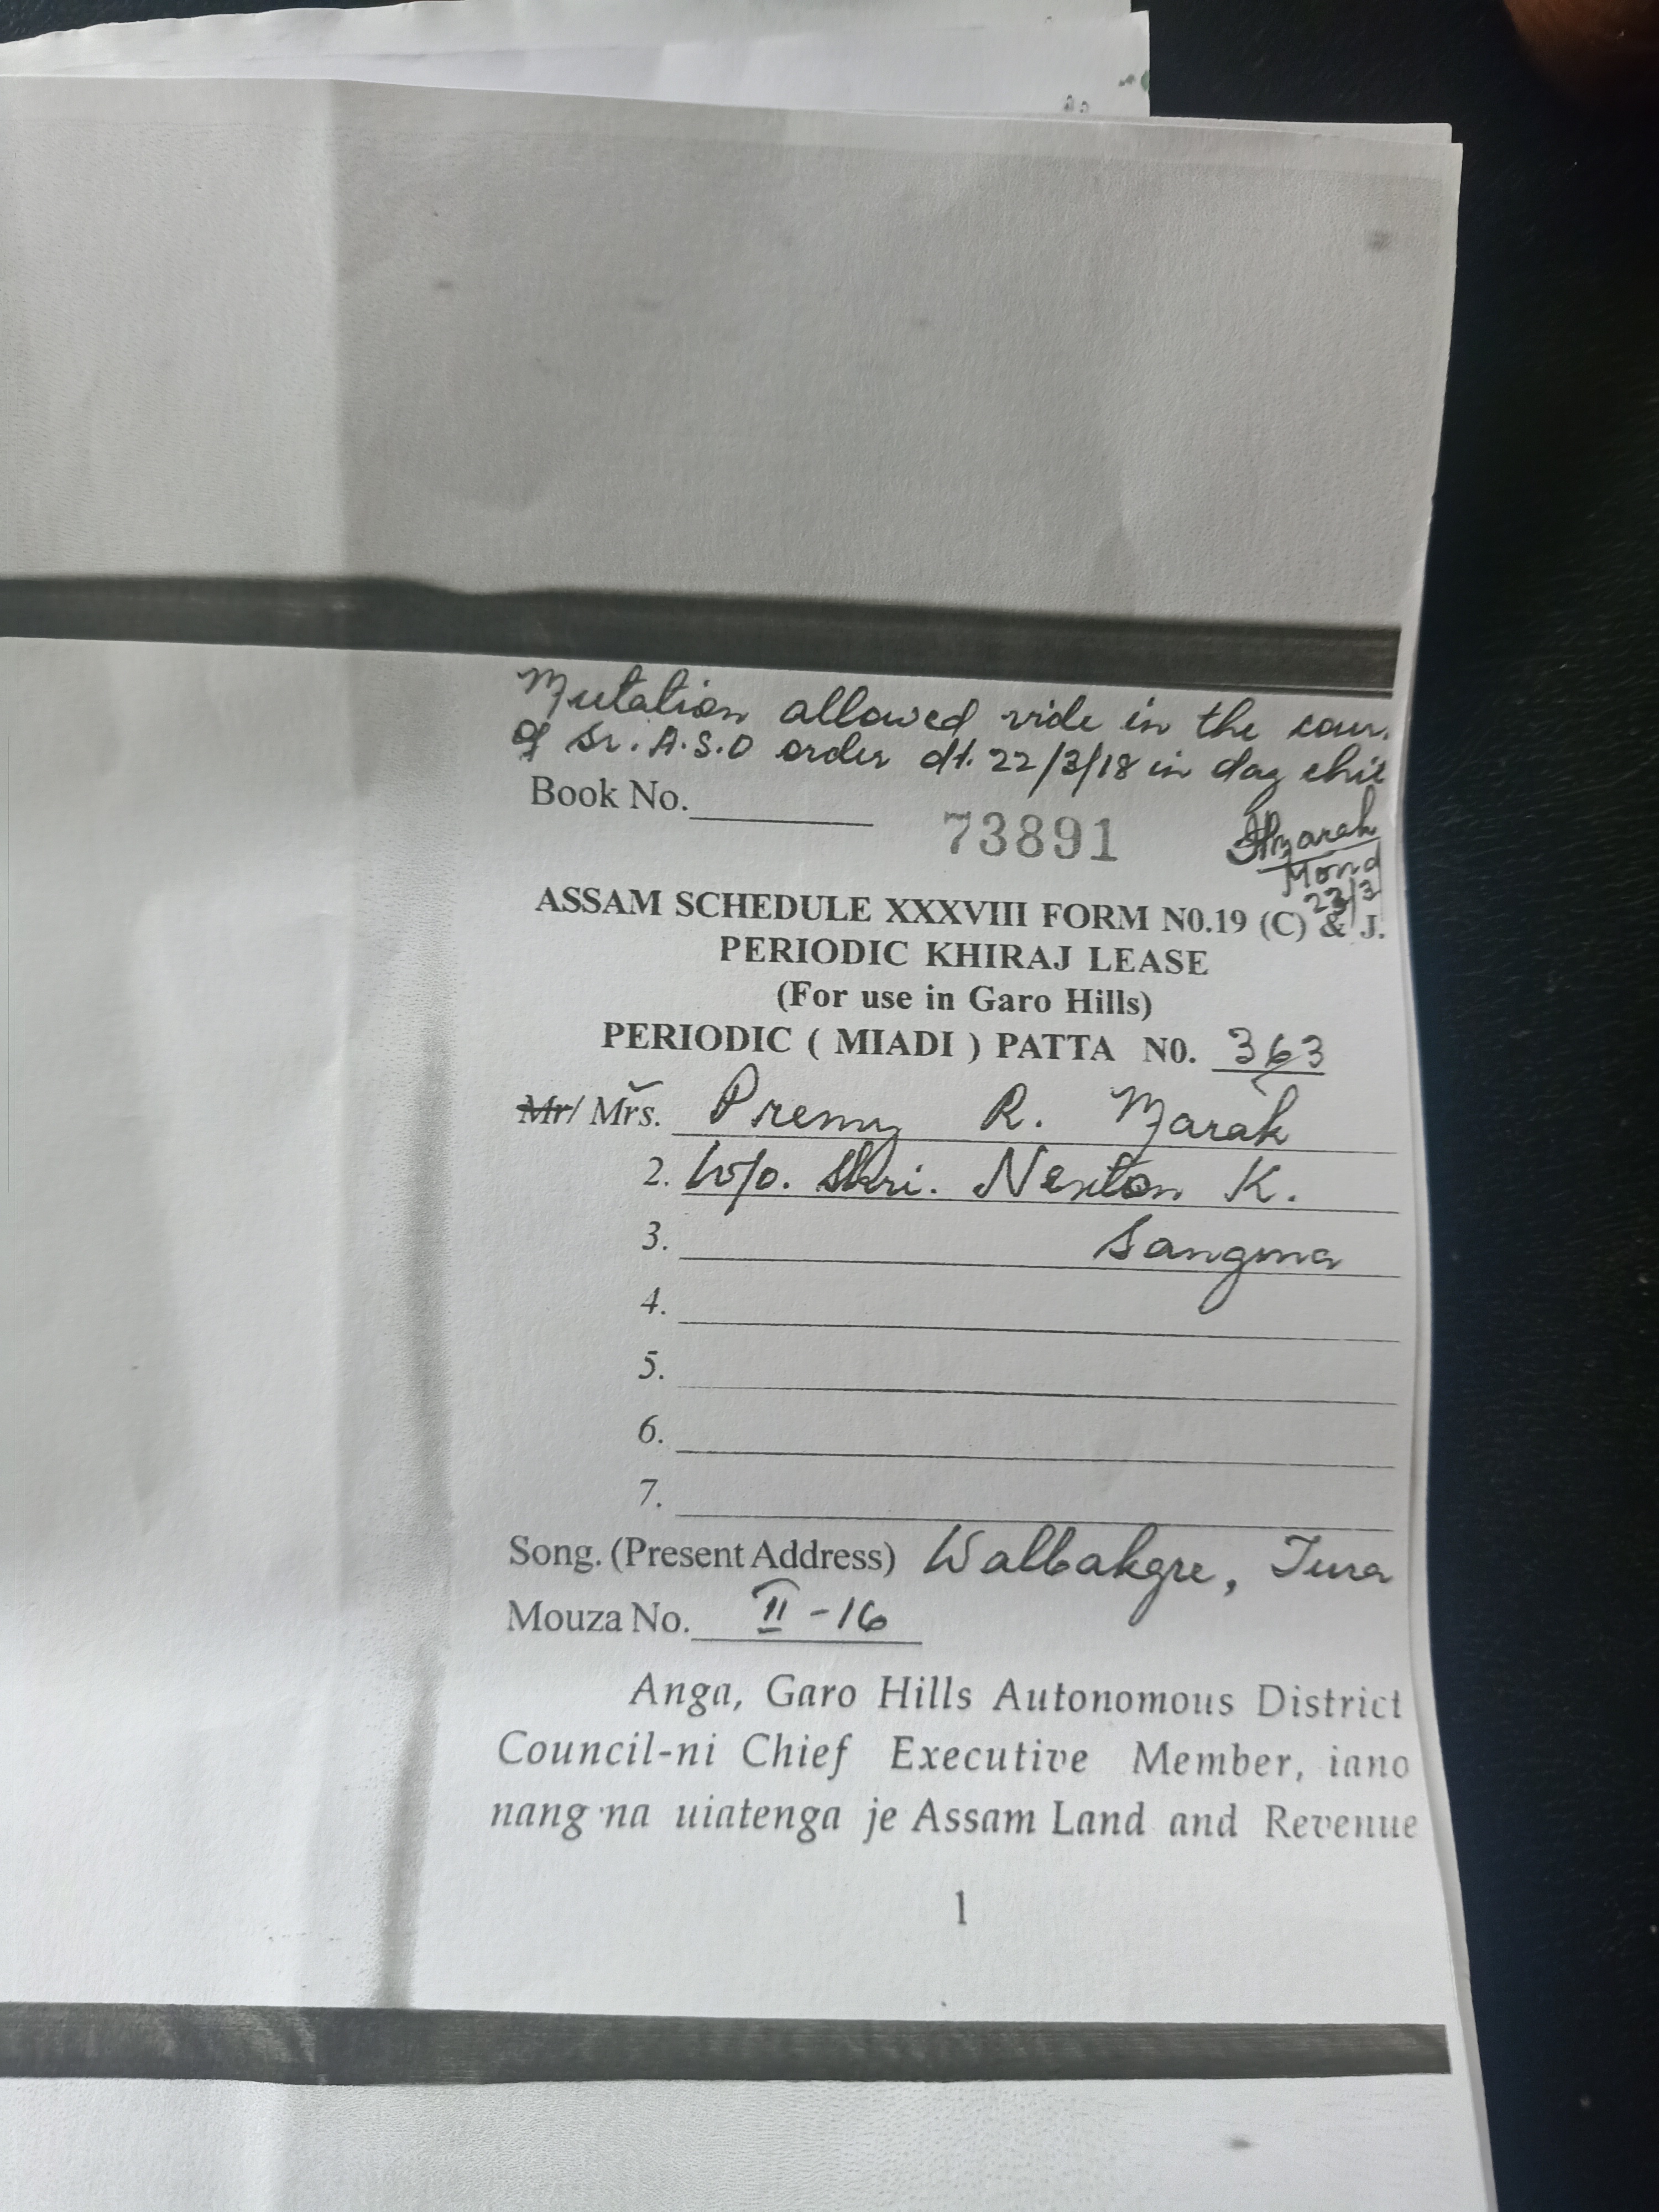 Mutation allowed vide in the cour
of Sr. A.S.O order dt. 22/3/18 in dag chit
Book No.
73891
Marak
Mond
23/3
ASSAM SCHEDULE XXXVIII FORM N0.19 (C) & J.
PERIODIC KHIRAJ LEASE
(For use in Garo Hills)
PERIODIC ( MIADI ) PATTA N0. 363
Mr/ Mrs. Premy R. Marak
2. W/o. Shri. Nexton K.
3. Sangma
4.
5.
6.
7.
Song. (Present Address) Walbakgre, Tura
Mouza No. II -16
Anga, Garo Hills Autonomous District
Council-ni Chief Executive Member, iano
nang·na uiatenga je Assam Land and Revenue
1